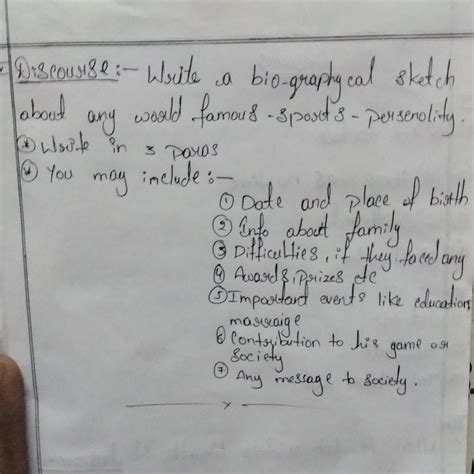 Discourse :- Write a bio-graphycal sketch
about any world famous - sports - personolity.
* Write in 3 paras
* You may include :-
① Date and place of birth
② Info about family
③ Difficulties, if they faced any
④ Awards, prizes etc
⑤ Important events like education,
marraige
⑥ Contribution to his game or
society
⑦ Any message to society.
x